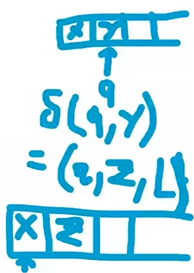 x y
q
δ(q,y)
= (z,Z,L)
X Z